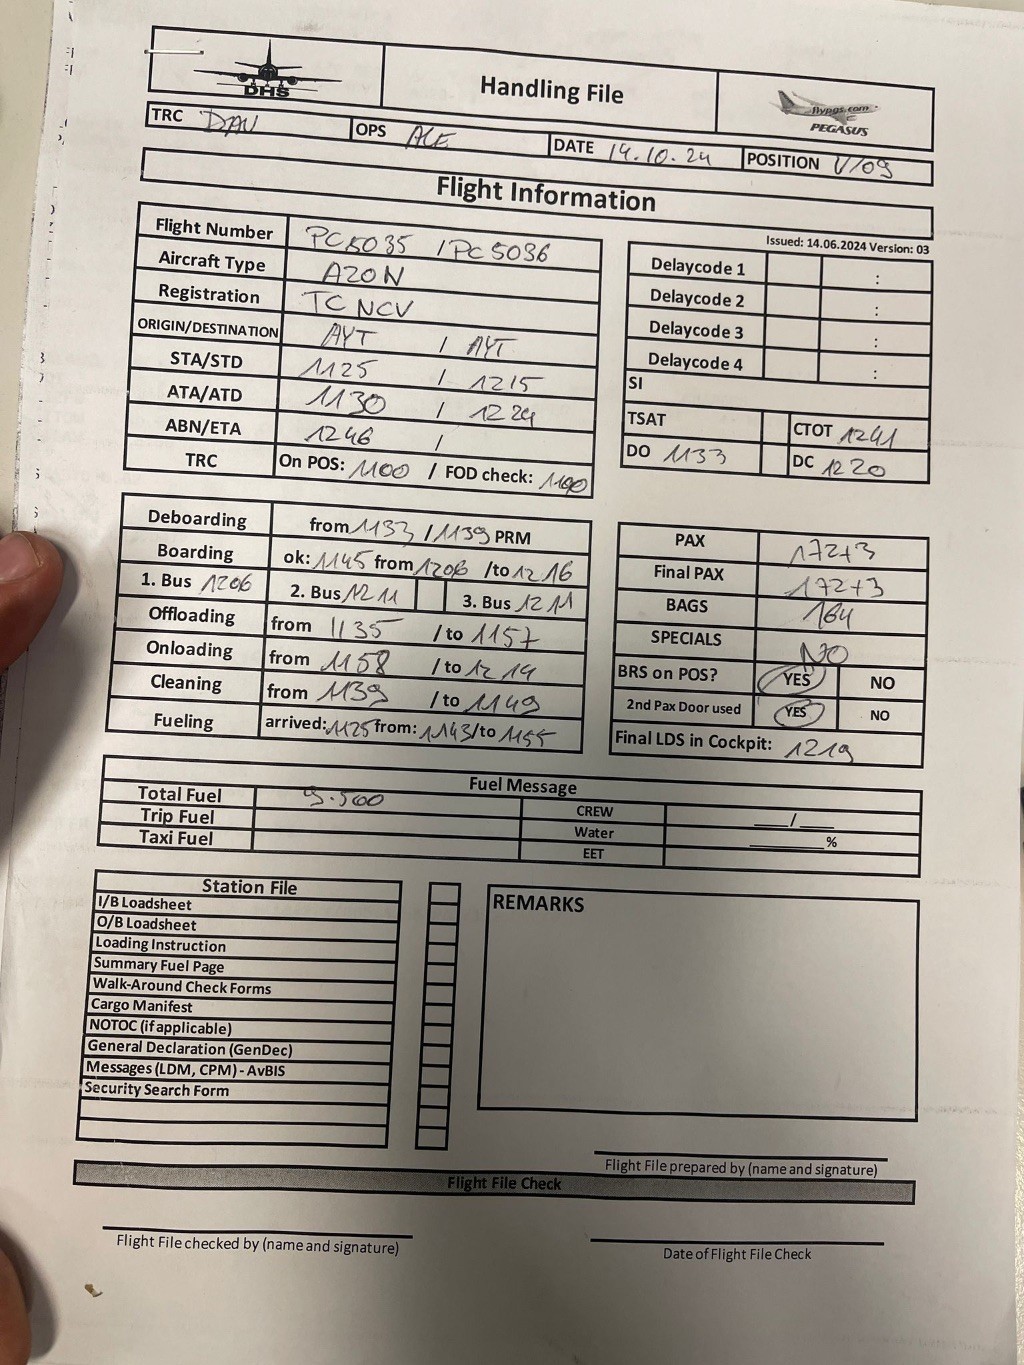 DHS
Handling File
flypgs.com
PEGASUS
TRC DAV OPS ALE DATE 14.10.24 POSITION V/09
Flight Information
Issued: 14.06.2024 Version: 03
Flight Number PC5035 / PC5036
Aircraft Type A20N
Registration TC NCV
ORIGIN/DESTINATION AYT / AYT
STA/STD 1125 / 1215
ATA/ATD 1130 / 1224
ABN/ETA 1246 /
TRC On POS: 1100 / FOD check: 1100
Delaycode 1 :
Delaycode 2 :
Delaycode 3 :
Delaycode 4 :
SI
TSAT CTOT 1241
DO 1133 DC 1220
Deboarding from 1133 / 1139 PRM
Boarding ok: 1145 from 1206 /to 1216
1. Bus 1206 2. Bus 1211 3. Bus 1211
Offloading from 1135 /to 1157
Onloading from 1158 /to 1214
Cleaning from 1139 /to 1149
Fueling arrived: 1125 from: 1143 /to 1155
PAX 172+3
Final PAX 172+3
BAGS 164
SPECIALS NO
BRS on POS? YES NO
2nd Pax Door used YES NO
Final LDS in Cockpit: 1219
Fuel Message
Total Fuel 9.500 CREW ___/___
Trip Fuel Water ______%
Taxi Fuel EET
Station File
I/B Loadsheet
O/B Loadsheet
Loading Instruction
Summary Fuel Page
Walk-Around Check Forms
Cargo Manifest
NOTOC (if applicable)
General Declaration (GenDec)
Messages (LDM, CPM) - AvBIS
Security Search Form
REMARKS
Flight File prepared by (name and signature)
Flight File Check
Flight File checked by (name and signature)
Date of Flight File Check